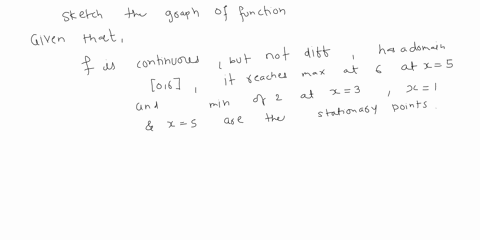 Sketch the graph of function
Given that,
f is continuous, but not diff, has a domain
[0,6], it reaches max at 6 at x=5
and min of 2 at x=3, x=1
& x=5 are the stationary points.